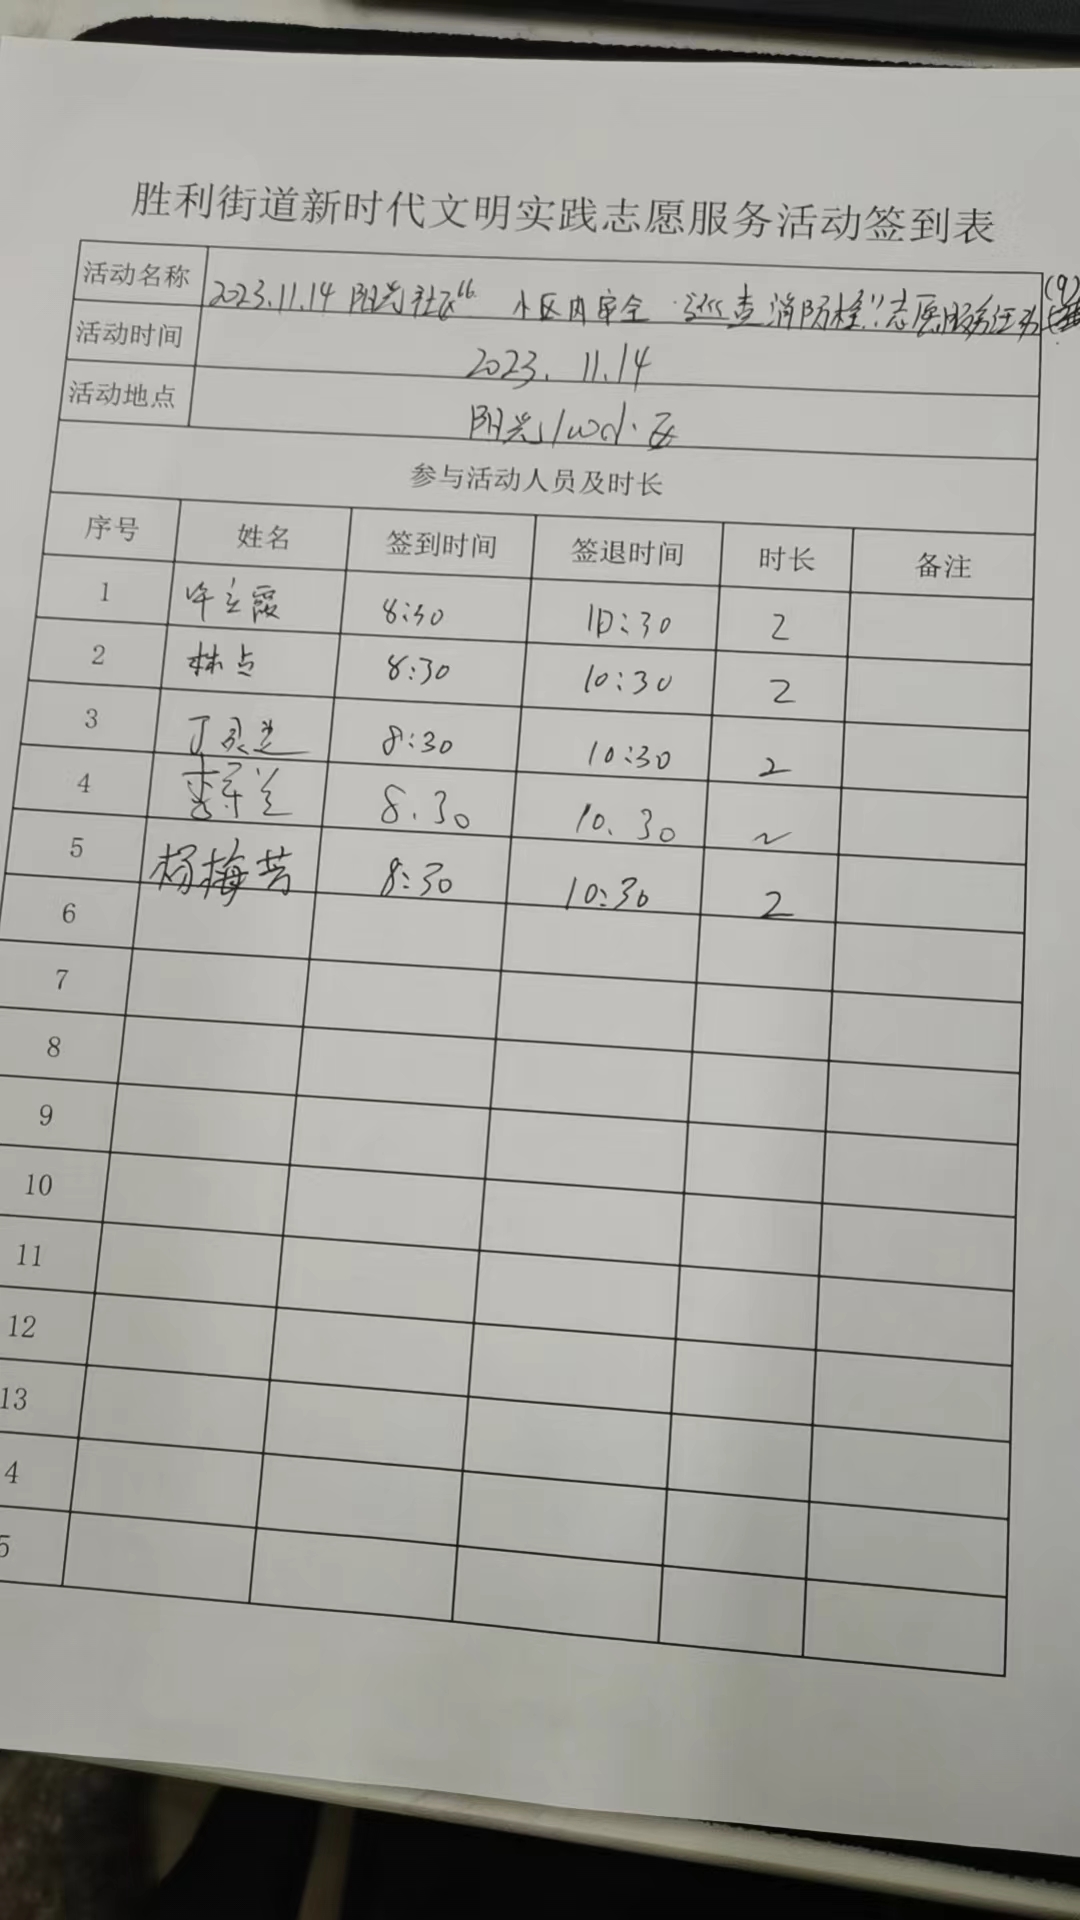 胜利街道新时代文明实践志愿服务活动签到表
活动名称 2023.11.14 阳光社区“小区内安全巡查消防栓”志愿服务活动 (9)
活动时间 2023.11.14
活动地点 阳光
参与活动人员及时长
序号 姓名 签到时间 签退时间 时长 备注
1 许立霞 8:30 10:30 2
2 林点 8:30 10:30 2
3 8:30 10:30 2
4 8.30 10.30 2
5 杨梅芳 8:30 10:30 2
6
7
8
9
10
11
12
13
4
5